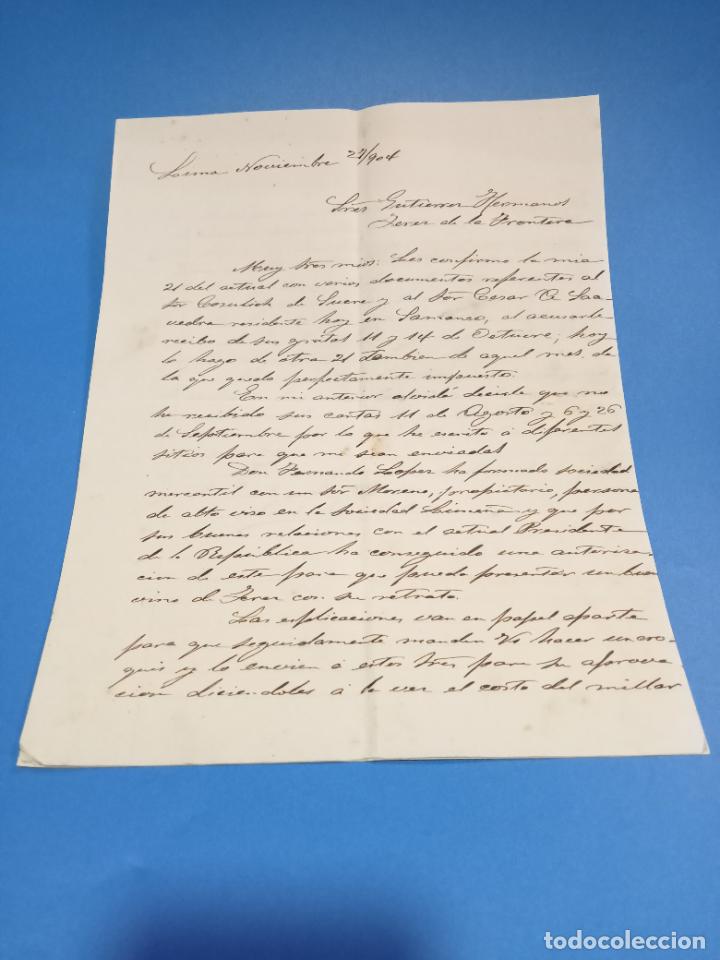 Noviembre 27/904
Sres Gutierrez Hermanos
Jerez de la Frontera
Muy Sres mios: Les confirmo la mia
21 del actual con varios documentos referentes al
Sor de Sucre y al Sor Cesar A. Saa-
vedra residente hoy en Samanco, al acusarle
recibo de sus gratas 11 y 14 de Octubre; hoy
lo hago de otra 21 tambien de aquel mes. de
la que quedo perfectamente impuesto.
En mi anterior olvidé decirle que no
he recibido sus cartas 11 de Agosto y 6 y 26
de Septiembre por lo que he escrito á diferentes
sitios para que mi sean enviadas
Don Fernando Lopez ha formado sociedad
mercantil con un Sor Moreno, propietario, persona
de alto viso en la Sociedad Limeña y que por
sus buenas relaciones con el actual Presidente
de la República ha conseguido una autoriza-
cion de este para que pueda presentar un buen
vino de Jerez con su retrato.
Las esplicaciones van en papel aparte
para que seguidamente manden Vs hacer un cro-
quis y lo envien á estos Sres para su aprova-
cion diciendoles á la vez el costo del millar
todocoleccion
todocoleccion.net